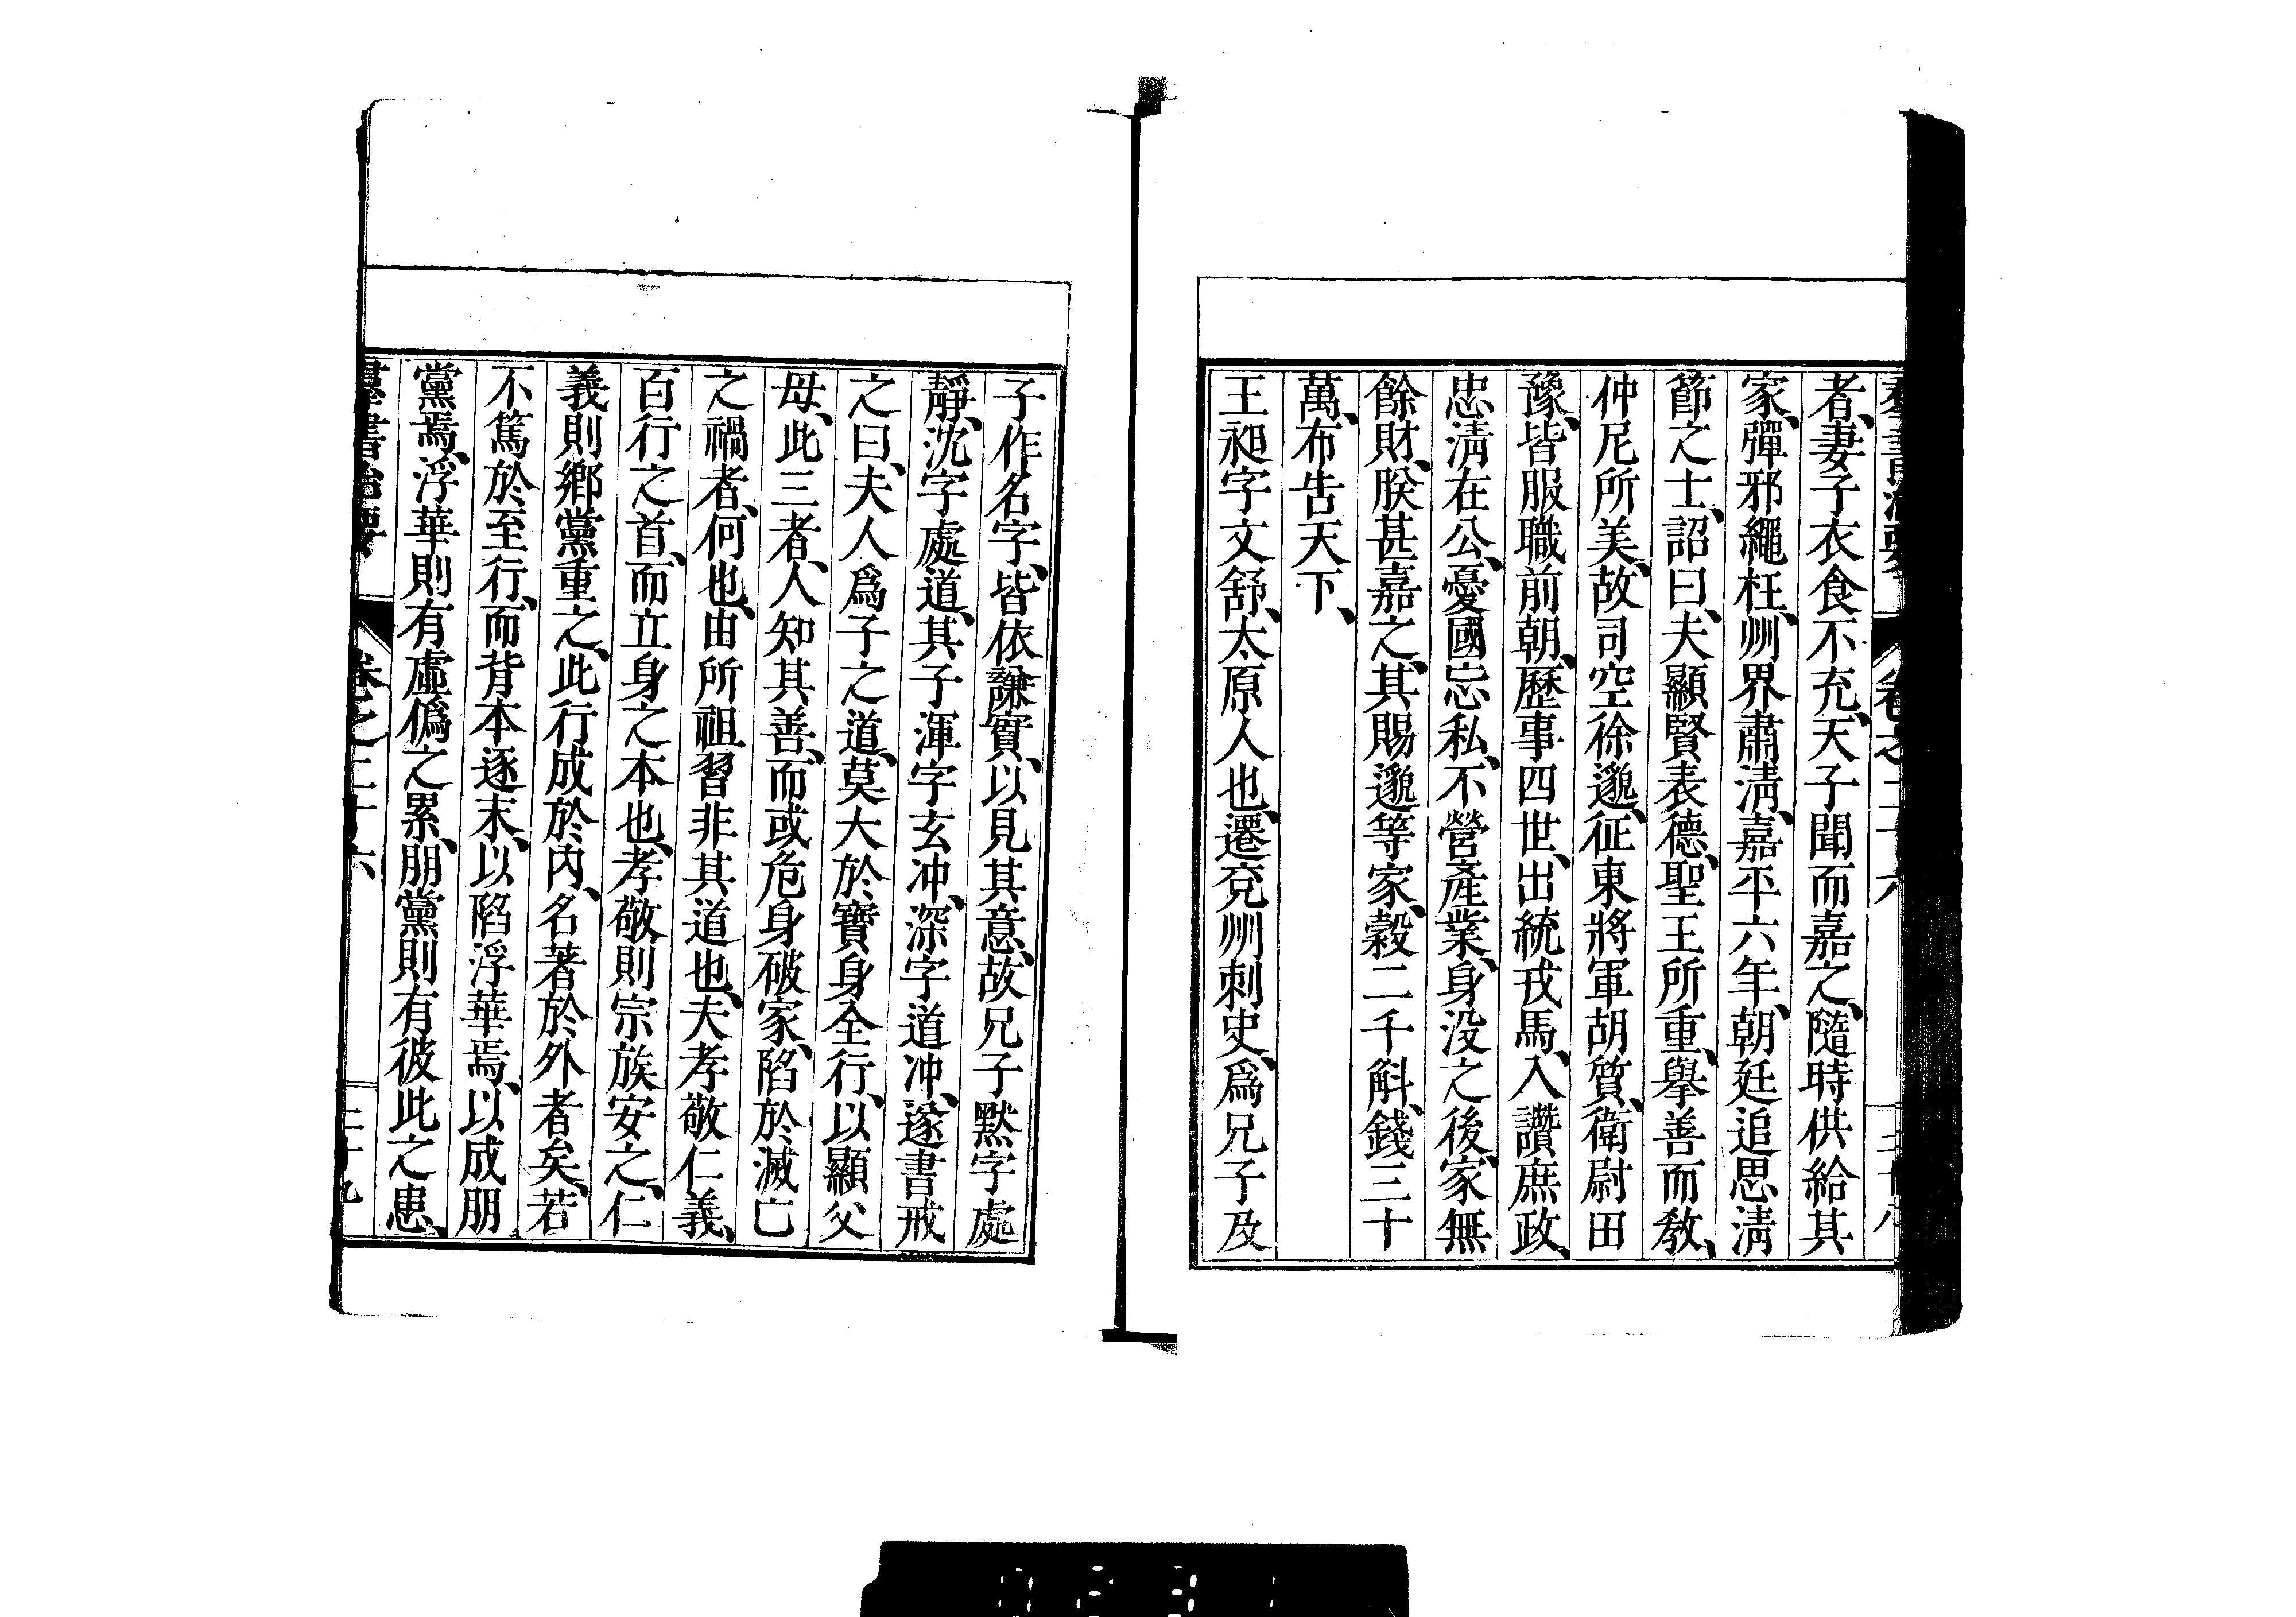 者、妻子衣食不充、天子聞而嘉之、隨時供給其
家、彈邪繩枉、州界肅淸、嘉平六年、朝廷追思淸
節之士、詔曰、夫顯賢表德、聖王所重、擧善而敎、
仲尼所美、故司空徐邈、征東將軍胡質、衛尉田
豫、皆服職前朝、歷事四世、出統戎馬、入讚庶政、
忠淸在公、憂國忘私、不營產業、身沒之後、家無
餘財、朕甚嘉之、其賜邈等家、穀二千斛、錢三十
萬、布告天下、
王昶字文舒、太原人也、遷兗州刺史、爲兄子及
子作名字、皆依謙實、以見其意、故兄子默字處
靜、沈字處道、其子渾字玄冲、深字道冲、遂書戒
之曰、夫人爲子之道、莫大於寶身全行、以顯父
母、此三者、人知其善、而或危身破家、陷於滅亡
之禍者、何也、由所祖習非其道也、夫孝敬仁義、
百行之首、而立身之本也、孝敬則宗族安之、仁
義則鄕黨重之、此行成於內、名著於外者矣、若
不篤於至行、而背本逐末、以陷浮華焉、以成朋
黨焉、浮華則有虛僞之累、朋黨則有彼此之患、
羣書治要 卷之二十六 二十九